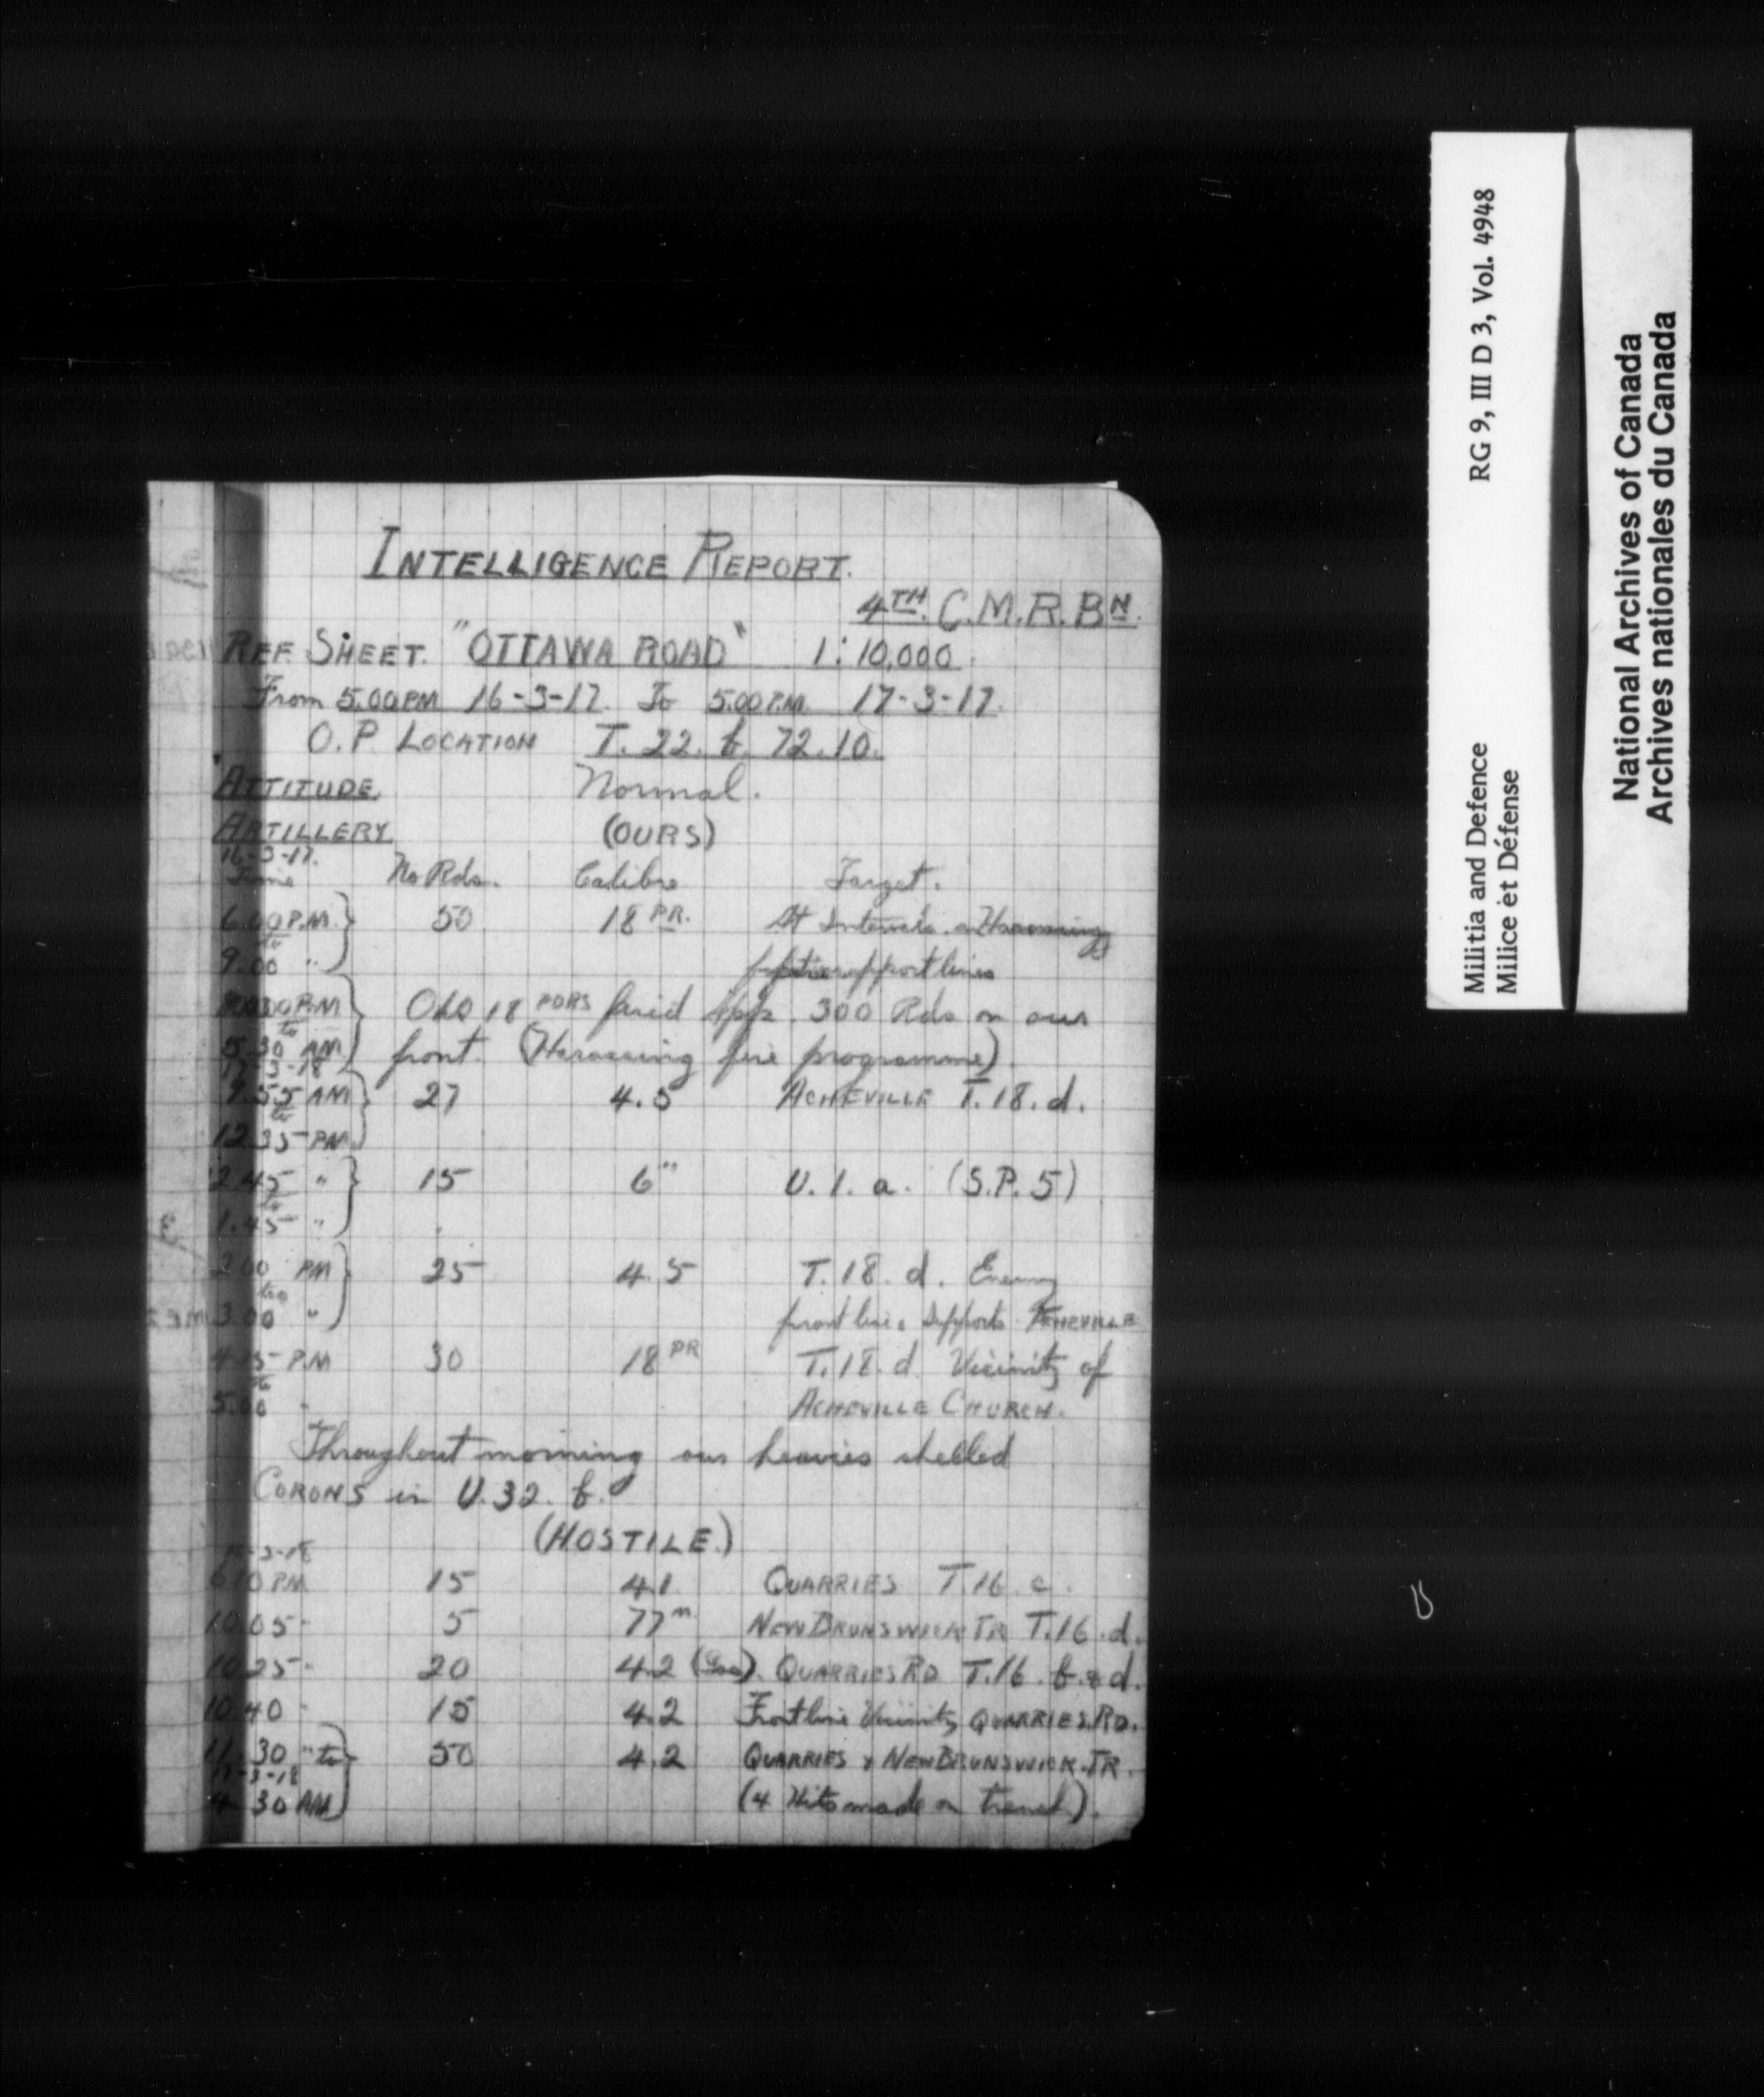 INTELLIGENCE REPORT.
4TH. C.M.R. BN.
REF. SHEET. "OTTAWA ROAD" 1:10,000.
From 5.00 PM 16-3-17. To 5.00 P.M. 17-3-17.
O.P. LOCATION T. 22. b. 72.10.
ATTITUDE. Normal.
ARTILLERY. (OURS)
16-3-17.
Time No Rds. Calibre Target.
6.00 P.M. 50 18 PR. At Intervals Harassing
to
9.00 " support lines
P.M Our 18 PDRS fired appx. 300 Rds on our
to
5.30 AM front. (Harassing fire programme).
9.55 AM 27 4.5 ACHEVILLE T.18.d.
to
12.35 PM.
12.45 " 15 6" U.1.a. (S.P.5)
to
1.45 "
2.00 PM 25 4.5 T.18.d. Enemy
to
3.00 " front line & Supports ACHEVILLE
4.15 P.M 30 18 PR T.18.d Vicinity of
to
5.00 " ACHEVILLE CHURCH.
Throughout morning our heavies shelled
CORONS in U.32.b.
(HOSTILE.)
16-3-18
6.10 PM 15 4.1 QUARRIES T.16.c.
10.05 " 5 77m NEW BRUNSWICK TR T.16.d.
10.25 " 20 4.2 (Gas). QUARRIES RD T.16.b.&d.
10.40 " 15 4.2 Front line Vicinity QUARRIES RD.
11.30 " to 50 4.2 QUARRIES & NEW BRUNSWICK TR.
17-3-18
4.30 AM (4 Hits made on trench).
Militia and Defence RG 9, III D 3, Vol. 4948
Milice et Défense
National Archives of Canada
Archives nationales du Canada